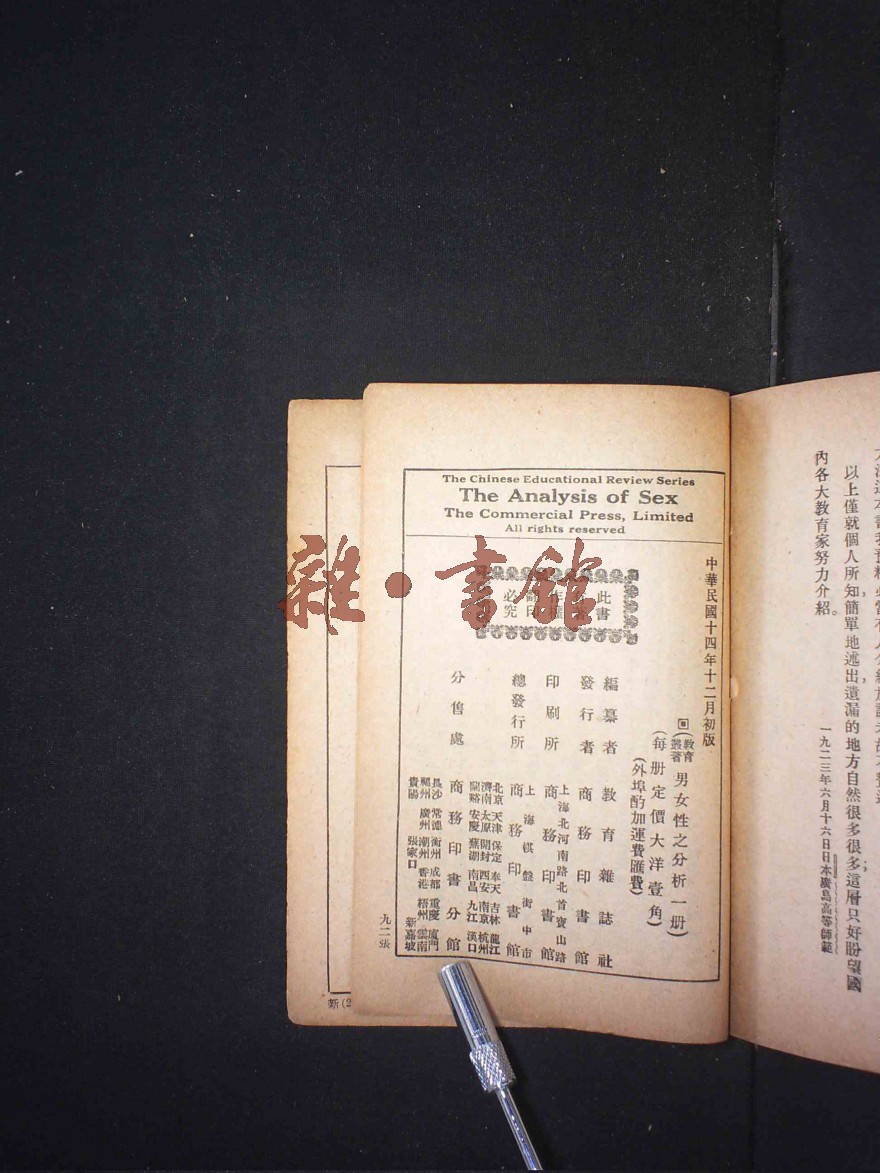 以上僅就個人所知，簡單地述出，遺漏的地方自然很多很多；這層只好盼望國
內各大教育家努力介紹。
一九二三年六月十六日日本廣島高等師範
The Chinese Educational Review Series
The Analysis of Sex
The Commercial Press, Limited
All rights reserved
中華民國十四年十二月初版
(教育叢著)男女性之分析一册)
(每册定價大洋壹角)
(外埠酌加運費匯費)
此書
必究
編纂者 教育雜誌社
發行者 商務印書館
上海北河南路北首寶山路
印刷所 商務印書館
上海棋盤街中市
總發行所 商務印書館
北京 天津 保定 奉天 吉林 龍江
濟南 太原 開封 西安 南京 杭州
蘭谿 安慶 蕪湖 南昌 九江 漢口
分售處 商務印書分館
長沙 常德 衡州 成都 重慶 廈門
福州 廣州 潮州 香港 梧州 雲南
貴陽 張家口 新嘉坡
九二張
新(2
雜·書館